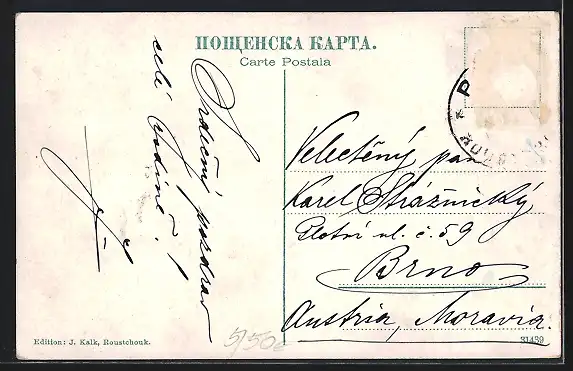 ПОЩЕНСКА КАРТА.
Carte Postala
Srdečný pozdrav
celé rodině!
Velectěný pan
Karel Strážnický
ul. č. 59
Brno
Austria, Moravia.
Edition: J. Kalk, Roustchouk.
31439